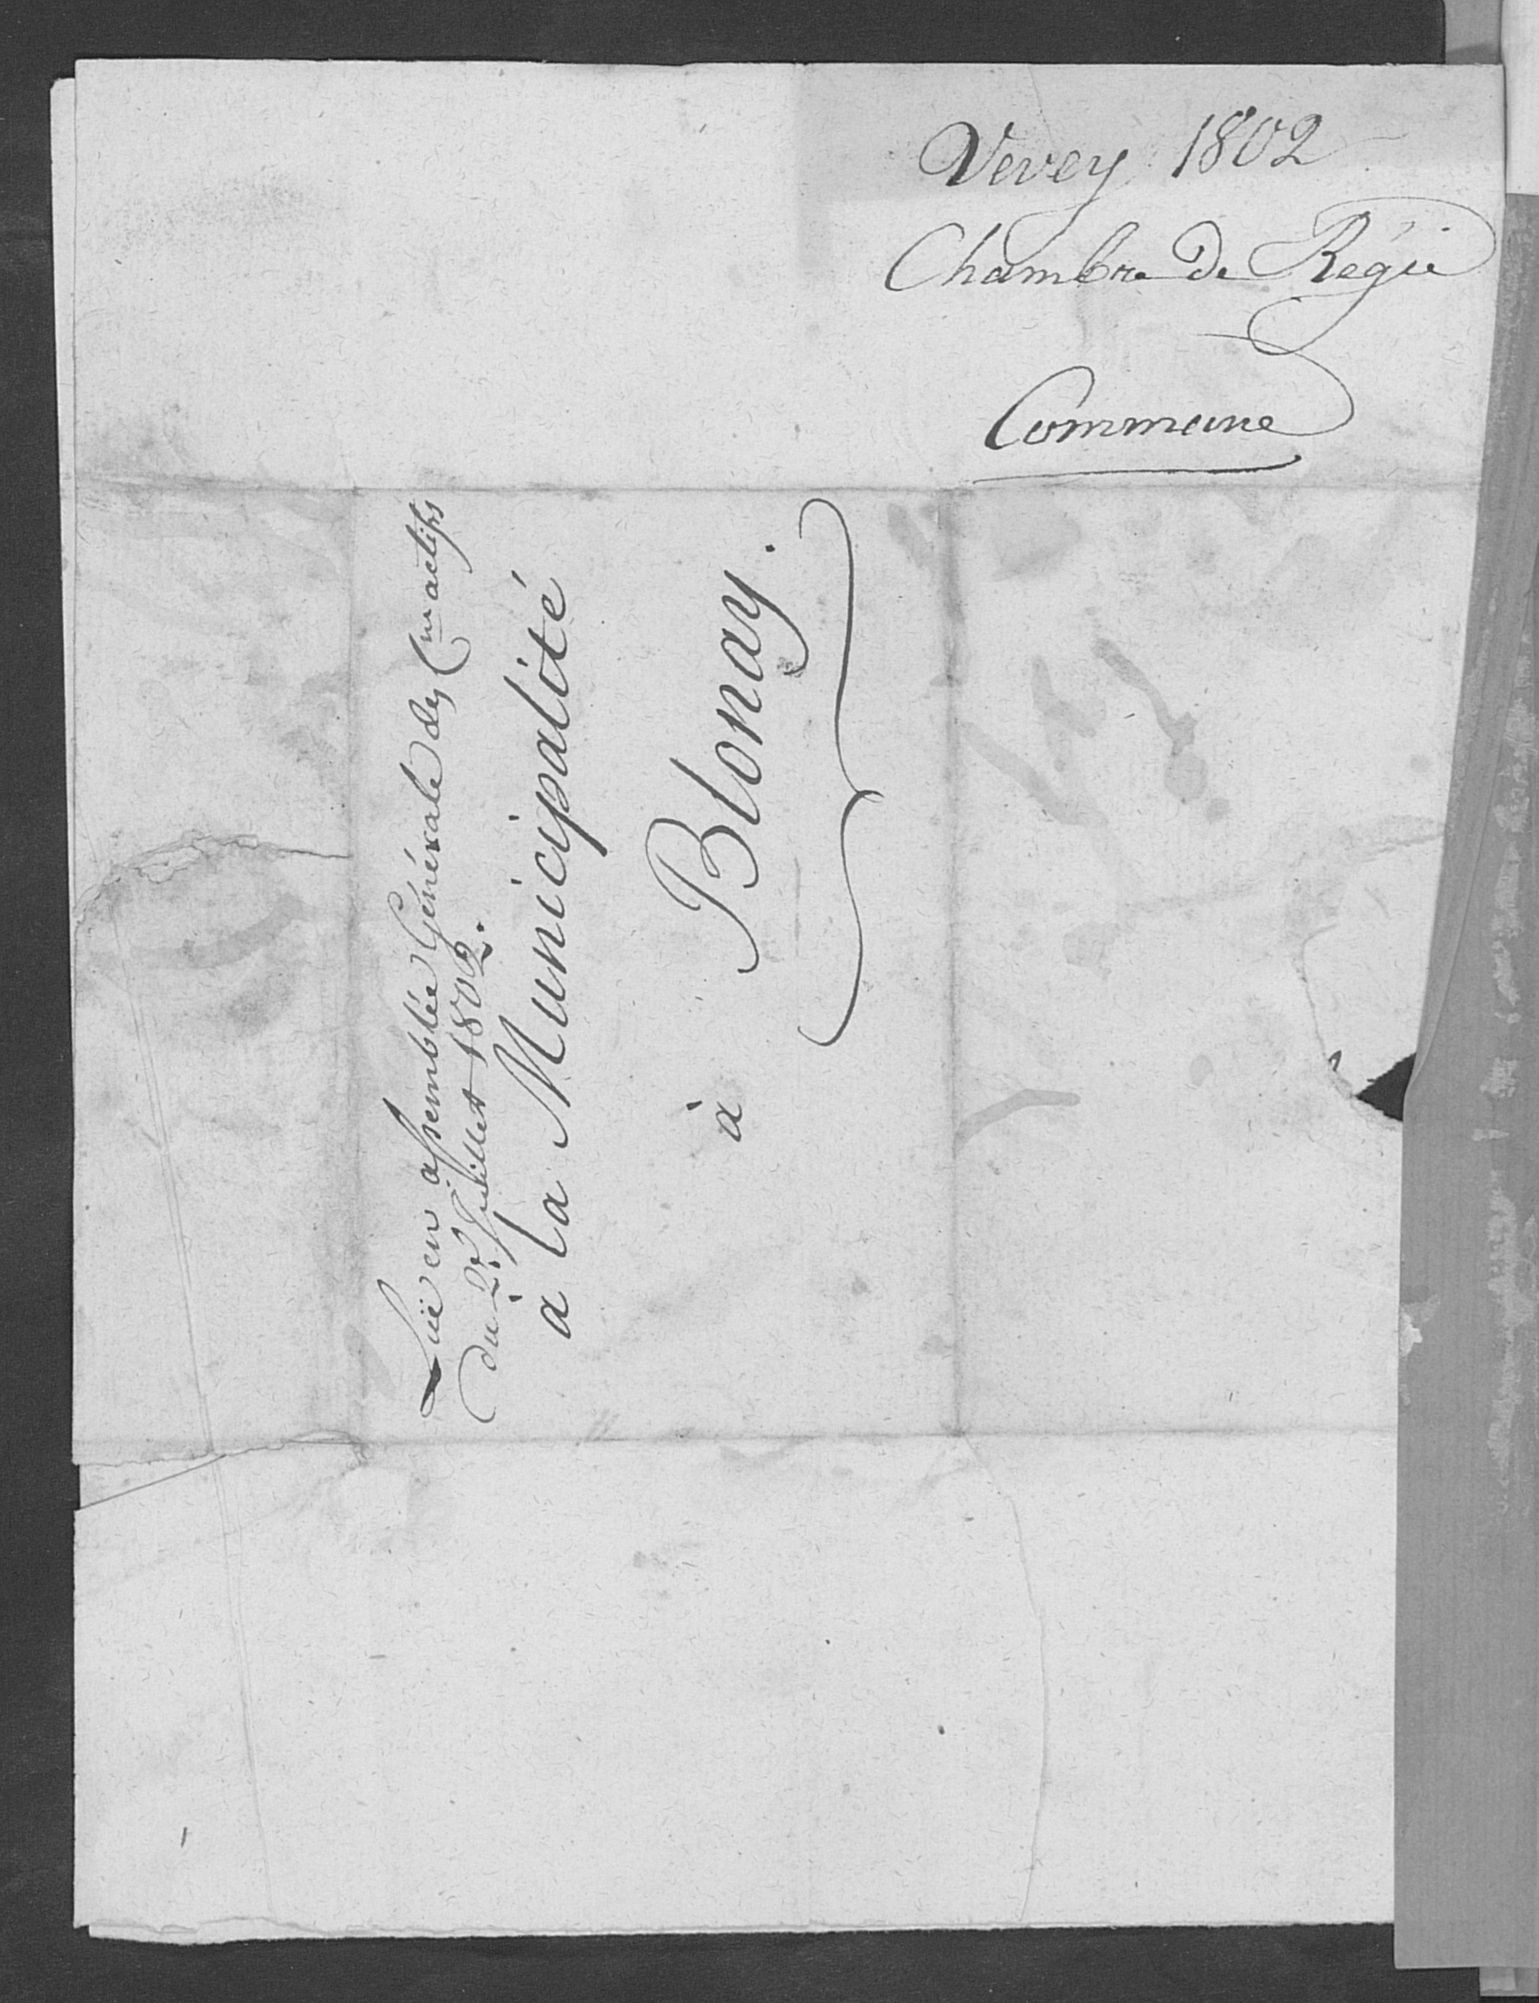 Vevey 1802
Chambre de Régie
Commune
Luë en assemblée Générale des C.ns actifs
du 2.e Juillet 1802.
à la Municipalité
à Blonay.